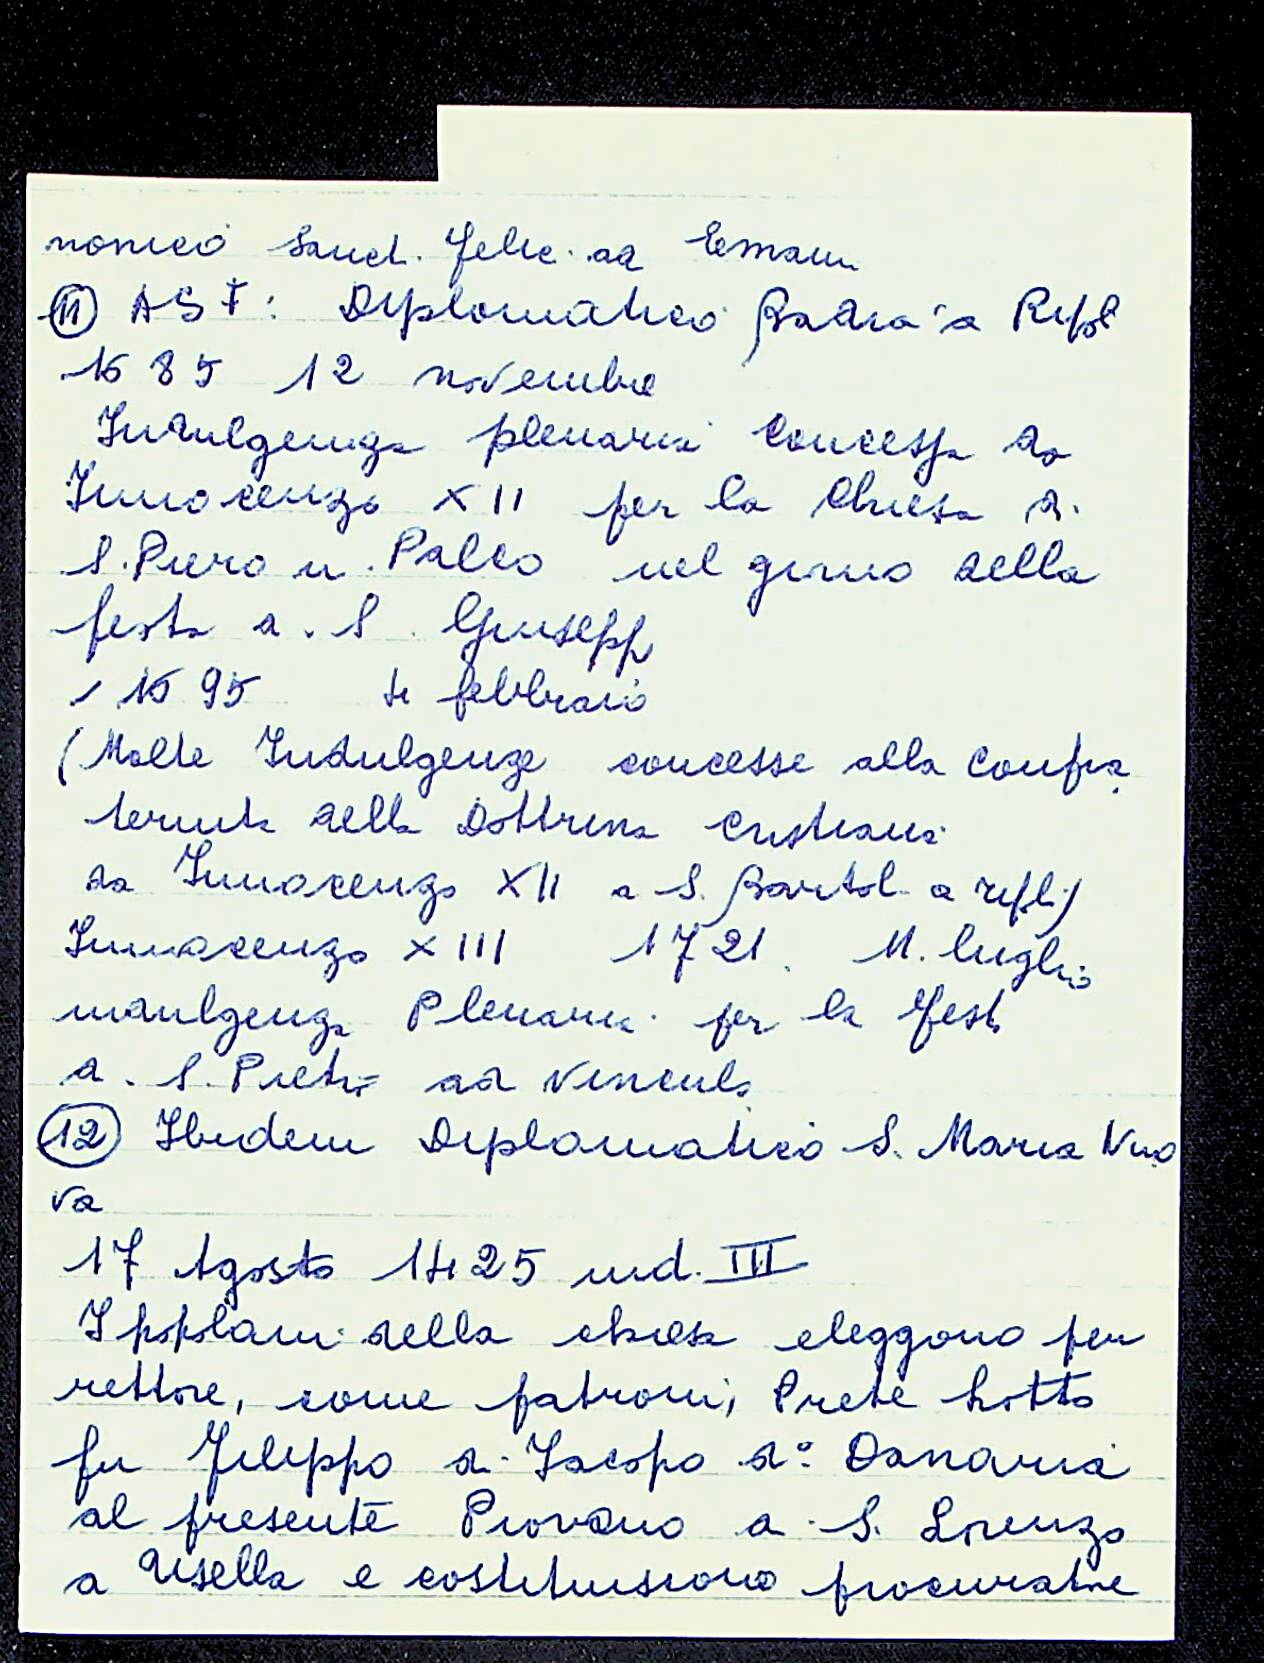 nonico Sanct. Felic. ad Eman
(11) ASF: Diplomatico Badia a Ripol
1685 12 novembre
Indulgenza plenaria concessa da
Innocenzo XII per la Chiesa di
S. Piero in Palco nel giorno della
festa di S. Giusepp
1695 4 febbraio
(Molte Indulgenze concesse alla Confra
ternita della Dottrina Cristiana
da Innocenzo XII a S. Bartol. a Ripoli)
Innocenzo XIII 1721. 11. luglio
indulgenza Plenaria per la Festa
di S. Pietro ad Vincula
(12) Ibidem Diplomatico S. Maria Nuo
va
17 Agosto 1425 ind. III
I popolani della chiesa eleggono per
rettore, come patroni, Prete
fu Filippo di Iacopo da
al presente Piovano a S. Lorenzo
a Usella e costituiscono procuratore